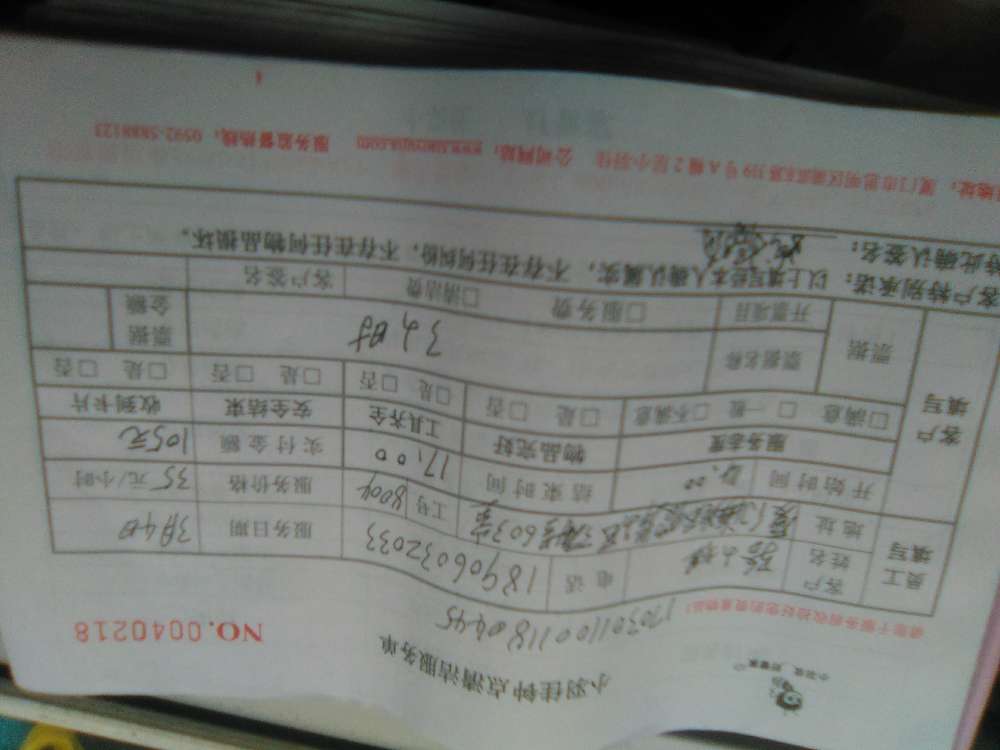 小羽佳 好管家
小羽佳钟点清洁服务单
NO.0040218
请您于服务前收拾好您的贵重物品!
17030110011180445
员工填写 客户姓名 电话 18906032033 服务日期 3月4日
地址 603室 工号 8004 服务价格 35元/小时
客户填写 开始时间 结束时间 17:00 实付金额 105元
服务态度 物品完好 工具齐全 安全结束 收到卡片
□满意 □一般 □不满意 □是 □否 □是 □否 □是 □否 □是 □否
票据 票据名称 3小时 票据金额
开票项目 □服务费 □清洁费 客户签名
客户特别承诺:以上填写经本人确认属实,不存在任何纠纷,不存在任何物品损坏。
特此确认签名:
地址:厦门市思明区莲前东路319号A幢2层小羽佳 公司网站: 服务监督热线:0592-5888123